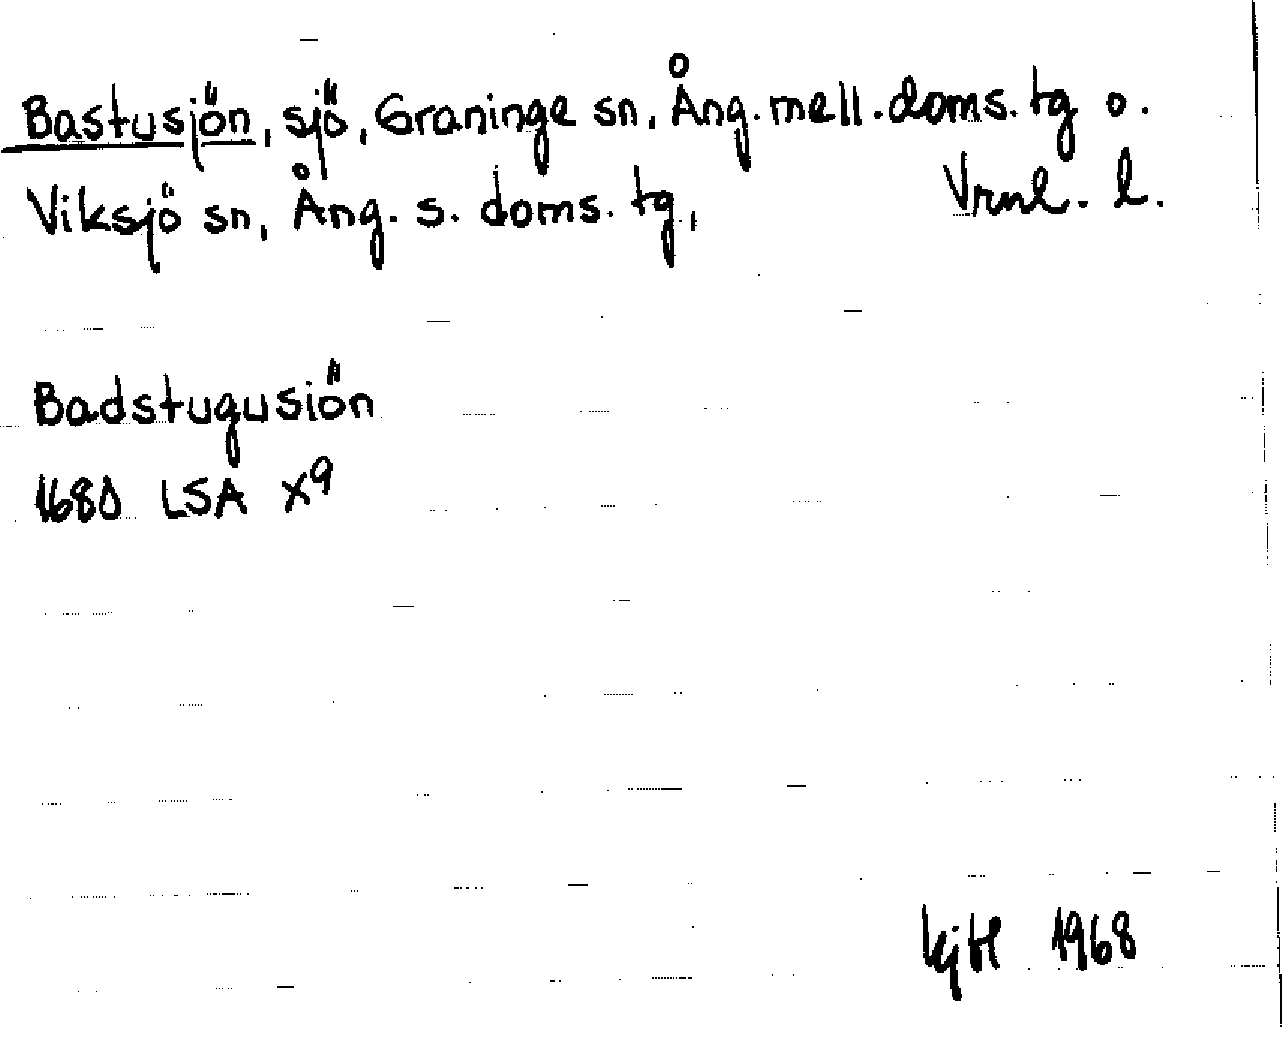 Bastusjön, sjö, Graninge sn, Ång. mell. doms. tg o.
Viksjö sn, Ång. s. doms. tg, Vrnl. l.
Badstugusiön
1680 LSA X9
1968